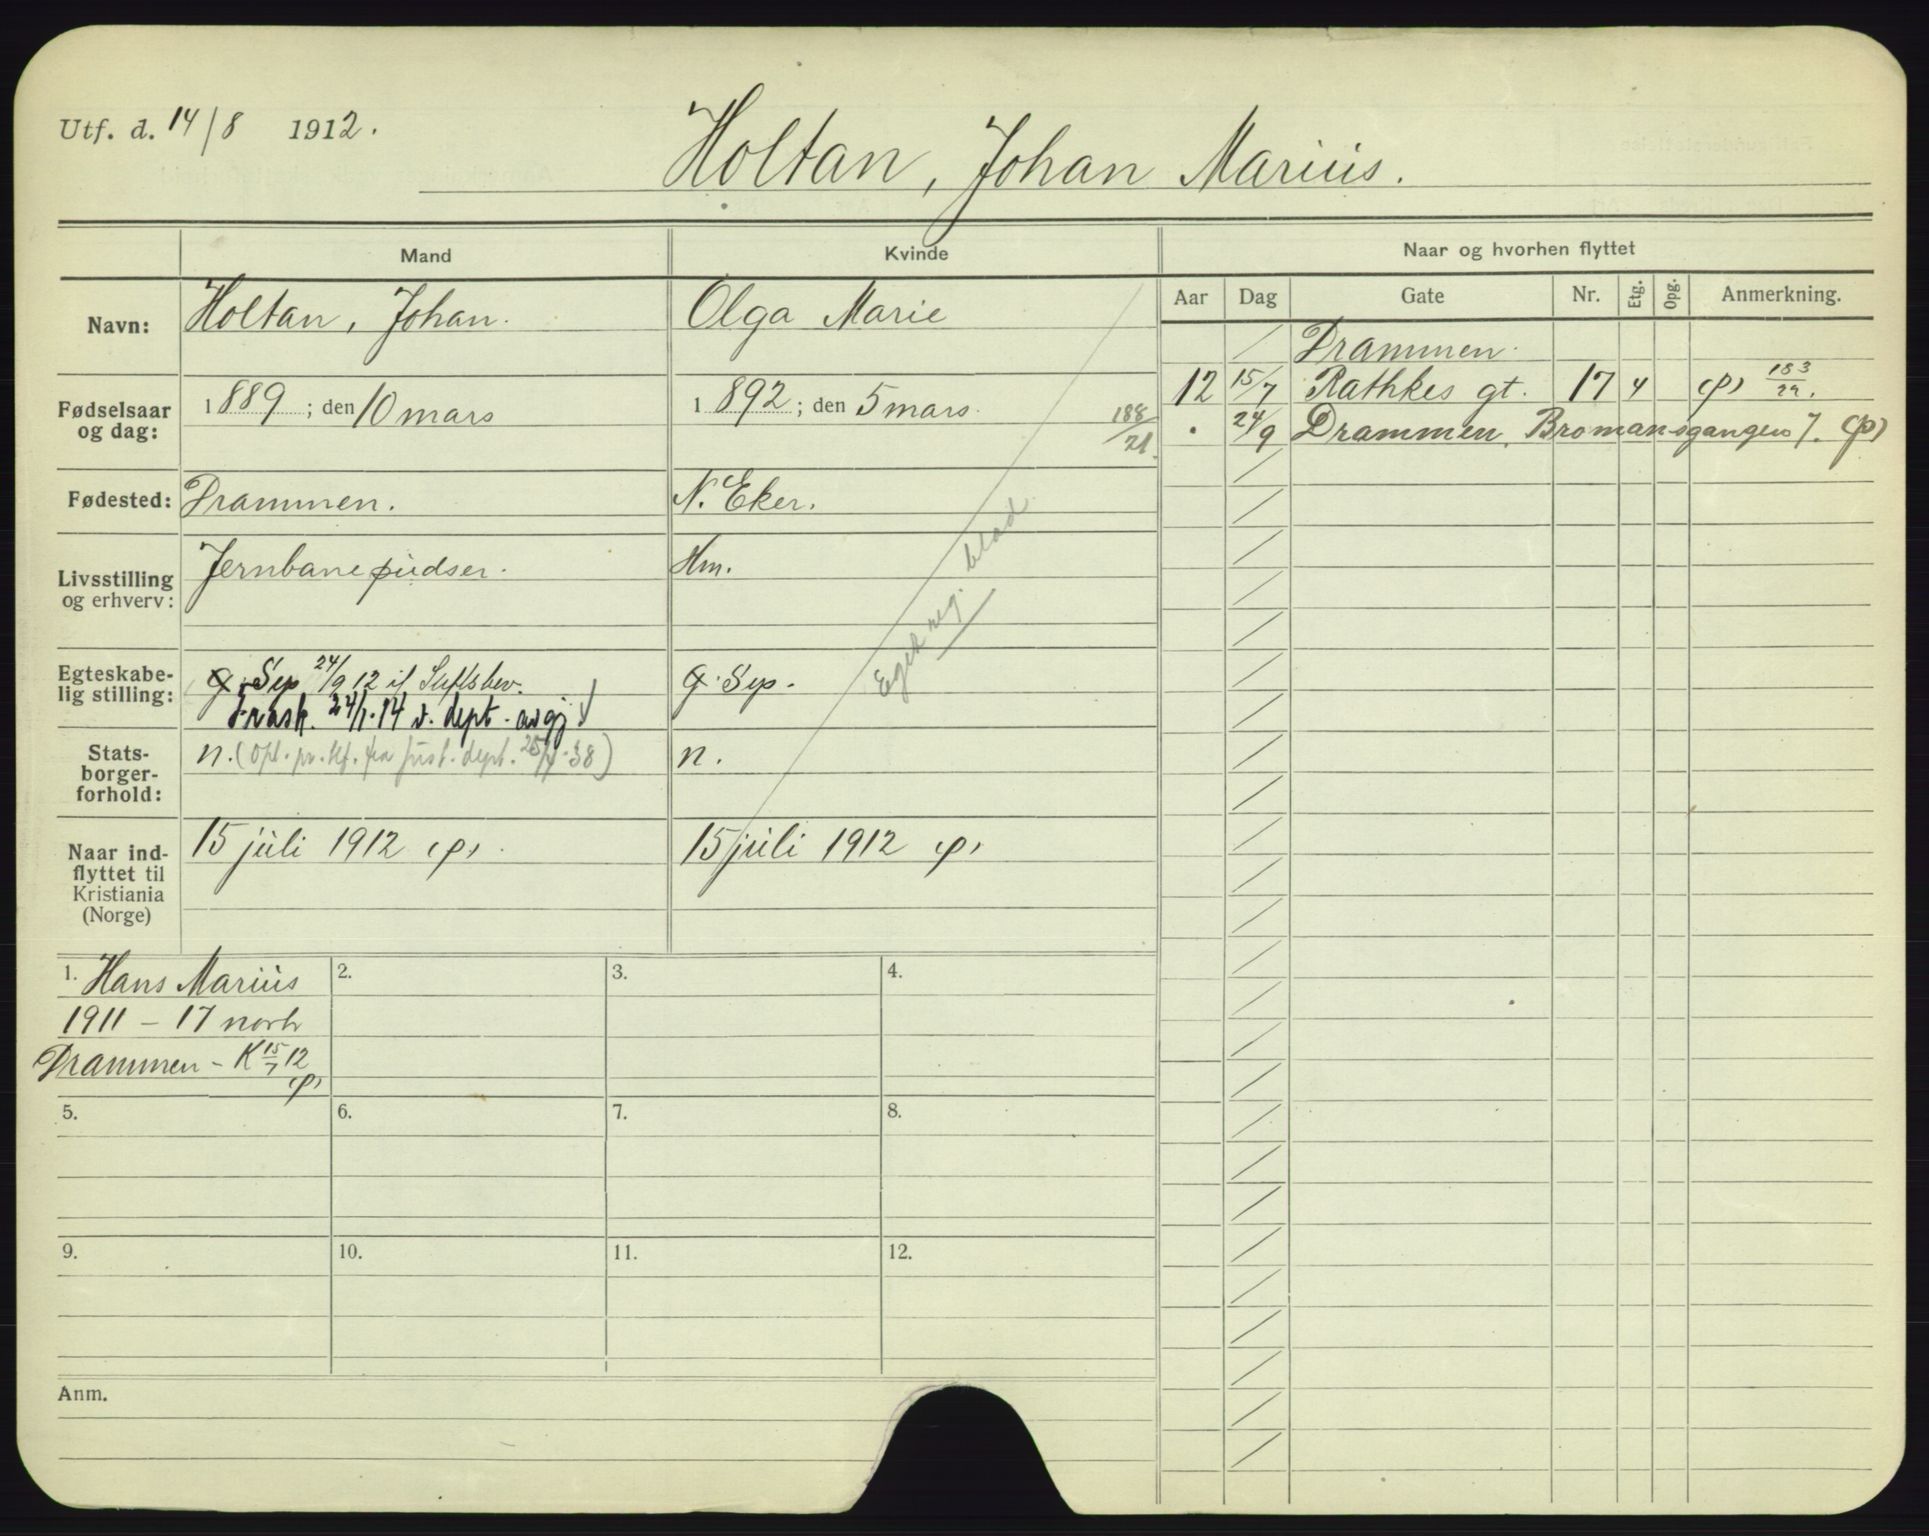 Utf. d. 14/8 1912.
Holtan, Johan Marius.
Mand
Kvinde
Naar og hvorhen flyttet
Aar
Dag
Gate
Nr.
Etg.
Opg.
Anmerkning.
Navn:
Holtan, Johan.
Olga Marie
Fødselsaar
og dag:
1889; den 10 mars
1892; den 5 mars
188/21.
Fødested:
Drammen.
N. Eker.
Livsstilling
og erhverv:
Jernbanepudser.
Hm.
Eget reg. blad
Egteskabe-
lig stilling:
g. Sep 24/9 12 if Stiftsbev.
Frask. 24/1-14 v. dept. avgj
g. Sep.
Stats-
borger-
forhold:
n. (opl. pr. tlf. fra just. dept. -38)
n.
Naar ind-
flyttet til
Kristiania
(Norge)
15 juli 1912 (p)
15 juli 1912 (p)
Drammen.
12 15/7 Rathkes gt. 17 4 (p) 183/22.
. 24/9 Drammen, Bromansgangen 7. (p)
1. Hans Marius
1911 - 17 novb
Drammen - K 15/7 12
(p)
2.
3.
4.
5.
6.
7.
8.
9.
10.
11.
12.
Anm.